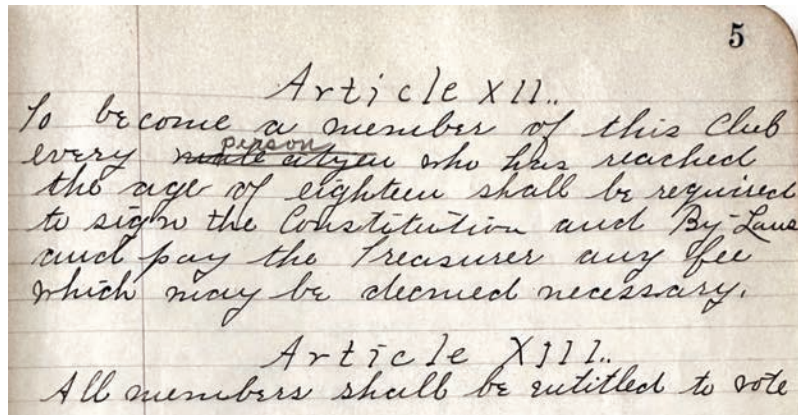 5
Article XII..
To become a member of this Club
every person male citizen who has reached
the age of eighteen shall be required
to sign the Constitution and By-Laws
and pay the Treasurer any fee
which may be deemed necessary.
Article XIII..
All members shall be entitled to vote